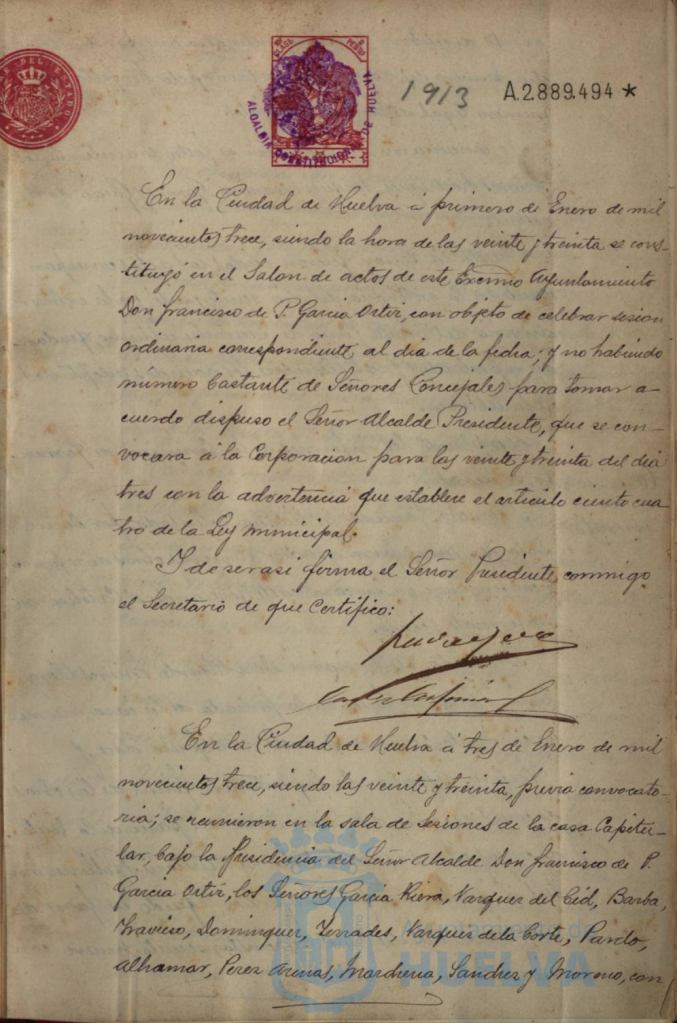 1913 A.2.889.494 *
ALCALDIA CONSTITUCIONAL DE HUELVA
En la Ciudad de Huelva á primero de Enero de mil
novecientos trece, siendo la hora de las veinte y treinta se cons-
tituyó en el Salon de actos de este Excmo Ayuntamiento
Don Francisco de P. Garcia Ortiz, con objeto de celebrar sesion
ordinaria correspondiente al dia de la fecha; y no habiendo
número bastante de Señores Concejales para tomar a-
cuerdo dispuso el Señor Alcalde Presidente, que se con-
vocara á la Corporacion para las veinte y treinta del dia
tres con la advertencia que establece el articulo ciento cua
tro de la Ley Municipal.
Y de ser asi firma el Señor Presidente, conmigo
el Secretario de que Certifico:
En la Ciudad de Huelva á tres de Enero de mil
novecientos trece, siendo las veinte y treinta, previa convocato-
ria; se reunieron en la sala de Sesiones de la casa Capitu-
lar, bajo la Presidencia del Señor Alcalde Don Francisco de P.
Garcia Ortiz, los Señores Garcia Riera, Vazquez del Cid, Barba,
Travieso, Dominguez, Terrades, Vazquez de la Corte, Pardo,
Alhamar, Perez Arenas, Marchena, Sanchez y Moreno, con
HUELVA